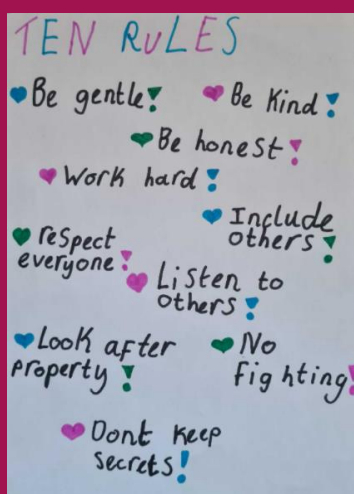 TEN RULES
Be gentle! Be Kind!
Be honest!
Work hard!
Include
others!
respect
everyone!
Listen to
others!
Look after
property!
No
fighting!
Dont keep
secrets!